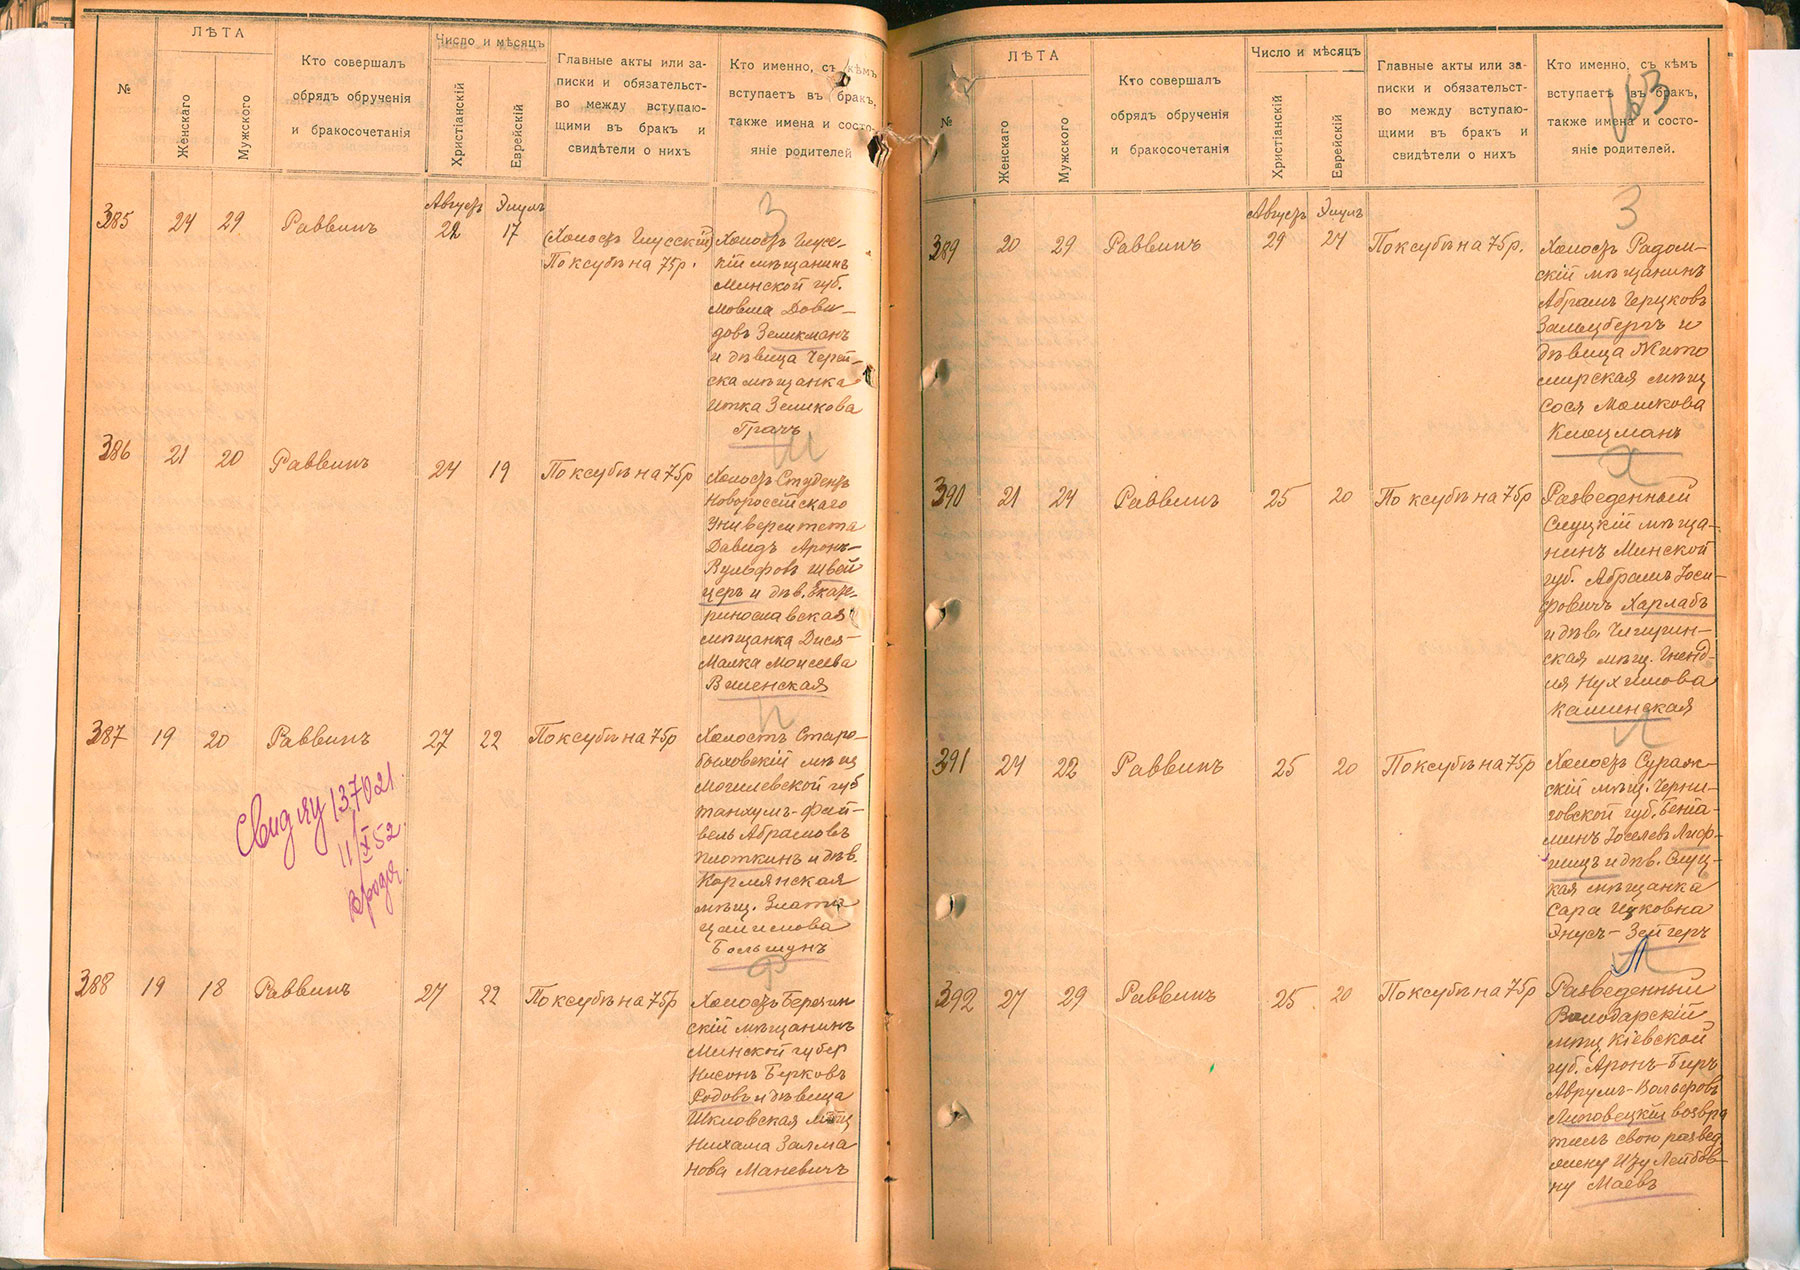 №
ЛѢТА
Женскаго
Мужского
Кто совершалъ
обрядъ обрученія
и бракосочетанія
Число и мѣсяцъ
Христіанскій
Еврейскій
Главные акты или за-
писки и обязательст-
во между вступаю-
щими въ бракъ и
свидѣтели о нихъ
Кто именно, съ кѣмъ
вступаетъ въ бракъ,
также имена и состо-
яніе родителей
385
24
29
Раввинъ
Августъ
22
Элулъ
17
(Холостъ Глусскій)
По ксубѣ на 75 р.
З
Холостъ Глус-
кій мѣщанинъ
Минской губ.
Мовша Дови-
довъ Зеликманъ
и дѣвица Черей-
ска мѣщанка
Итка Зеликова
Грачъ
386
21
20
Раввинъ
24
19
По ксубѣ на 75р
Ш
Холостъ Студентъ
Новороссійскаго
Университета
Давидъ Аронъ-
Вульфовъ Швей
церъ и дѣв. Екате-
ринославская
мѣщанка Дися-
Малка Моисеева
Виленская
387
19
20
Раввинъ
27
22
По ксубѣ на 75р
П
Холостъ Старо-
быховскій мѣщ
Могилевской губ
Танхумъ-Фай-
вель Абрамовъ
Плоткинъ и дѣв.
Кормянская
мѣщ. Злата
Хаимова
Большунъ
137021
11/X 52
388
19
18
Раввинъ
27
22
По ксубѣ на 75р
Холостъ Березин
скій мѣщанинъ
Минской губер
Нисонъ Берковъ
Родовъ и дѣвица
Шкловская мѣщ
Нихама Залма
нова Маневичъ
163
№
ЛѢТА
Женскаго
Мужского
Кто совершалъ
обрядъ обрученія
и бракосочетанія
Число и мѣсяцъ
Христіанскій
Еврейскій
Главные акты или за-
писки и обязательст-
во между вступаю-
щими въ бракъ и
свидѣтели о нихъ
Кто именно, съ кѣмъ
вступаетъ въ бракъ,
также имена и состо-
яніе родителей.
389
20
29
Раввинъ
Августъ
29
Элулъ
24
По ксубѣ на 75р.
З
Холостъ Радом-
скій мѣщанинъ
Абрамъ Герцковъ
Зальцбергъ и
дѣвица Жито
мирская мѣщ
Сося Мошкова
Клоцманъ
390
21
24
Раввинъ
25
20
По ксубѣ на 75р
Х
Разведенный
Слуцкій мѣща-
нинъ Минской
губ. Абрамъ Іоси-
фовичъ Харлабъ
и дѣва Чигирин-
ская мѣщ. Гненд-
ля Нухимова
Каминская
391
24
22
Раввинъ
25
20
По ксубѣ на 75р
Л
Холостъ Сураж-
скій мѣщ. Черни-
говской губ. Бенiа-
минъ Іоселевъ Лиф-
шицъ и дѣв. Слуц-
кая мѣщанка
Сара Ицковна
Энусъ-Зейгеръ
392
27
29
Раввинъ
25
20
По ксубѣ на 75р
Л
Разведенный
Володарскій
мѣщ Кіевской
губ. Аронъ-Беръ
Аврумъ-Вольфовъ
Липовецкій возвра
тилъ свою развед
Лейбов-
ну Маевъ